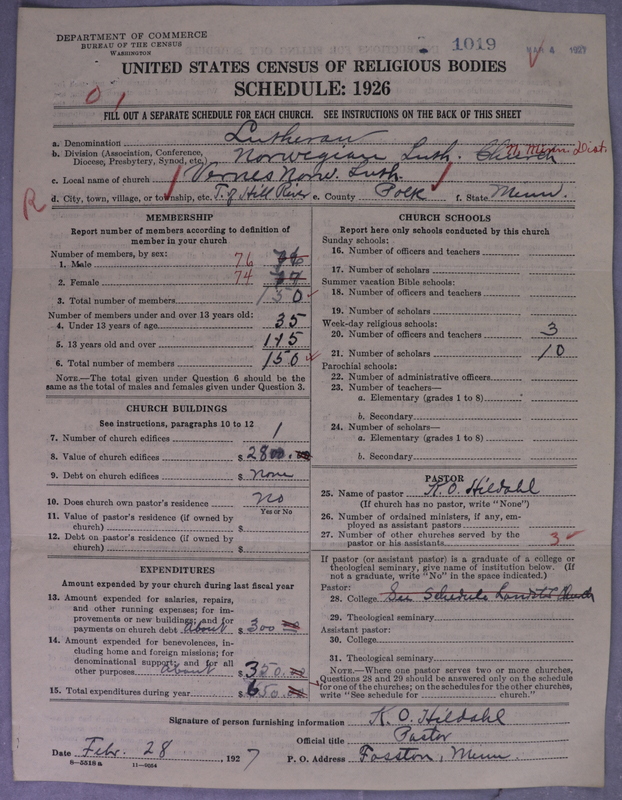 DEPARTMENT OF COMMERCE
BUREAU OF THE CENSUS
WASHINGTON
1019
MAR 4 1927
UNITED STATES CENSUS OF RELIGIOUS BODIES
SCHEDULE: 1926
FILL OUT A SEPARATE SCHEDULE FOR EACH CHURCH. SEE INSTRUCTIONS ON THE BACK OF THIS SHEET
a. Denomination Lutheran
b. Division (Association, Conference, Diocese, Presbytery, Synod, etc.) Norwegian Luth. Church N. Minn. Dist.
c. Local name of church Varnes Norw. Luth.
d. City, town, village, or township, etc. T. of Hill River e. County Polk f. State Minn.
R
MEMBERSHIP
Report number of members according to definition of
member in your church
Number of members, by sex:
1. Male 76
2. Female 74
3. Total number of members 150
Number of members under and over 13 years old:
4. Under 13 years of age 35
5. 13 years old and over 115
6. Total number of members 150
NOTE.—The total given under Question 6 should be the
same as the total of males and females given under Question 3.
CHURCH BUILDINGS
See instructions, paragraphs 10 to 12
7. Number of church edifices 1
8. Value of church edifices $ 2800.
9. Debt on church edifices $ None
10. Does church own pastor's residence no
Yes or No
11. Value of pastor's residence (if owned by
church) $
12. Debt on pastor's residence (if owned by
church) $
EXPENDITURES
Amount expended by your church during last fiscal year
13. Amount expended for salaries, repairs,
and other running expenses; for im-
provements or new buildings; and for
payments on church debt about $ 300
14. Amount expended for benevolences, in-
cluding home and foreign missions; for
denominational support; and for all
other purposes about $ 350.
15. Total expenditures during year $ 650.
CHURCH SCHOOLS
Report here only schools conducted by this church
Sunday schools:
16. Number of officers and teachers
17. Number of scholars
Summer vacation Bible schools:
18. Number of officers and teachers
19. Number of scholars
Week-day religious schools:
20. Number of officers and teachers 3
21. Number of scholars 10
Parochial schools:
22. Number of administrative officers
23. Number of teachers—
a. Elementary (grades 1 to 8)
b. Secondary
24. Number of scholars—
a. Elementary (grades 1 to 8)
b. Secondary
PASTOR
25. Name of pastor K. O. Hildahl
(If church has no pastor, write "None")
26. Number of ordained ministers, if any, em-
ployed as assistant pastors
27. Number of other churches served by the
pastor or his assistants 3
If pastor (or assistant pastor) is a graduate of a college or
theological seminary, give name of institution below. (If
not a graduate, write "No" in the space indicated.)
Pastor:
28. College See Schedule Landstad Church
29. Theological seminary
Assistant pastor:
30. College
31. Theological seminary
NOTE.—Where one pastor serves two or more churches,
Questions 28 and 29 should be answered only on the schedule
for one of the churches; on the schedules for the other churches,
write "See schedule for church."
Signature of person furnishing information K. O. Hildahl
Official title Pastor
Date Febr. 28 1927 P. O. Address Fosston, Minn.
8—5518 a 11—9054